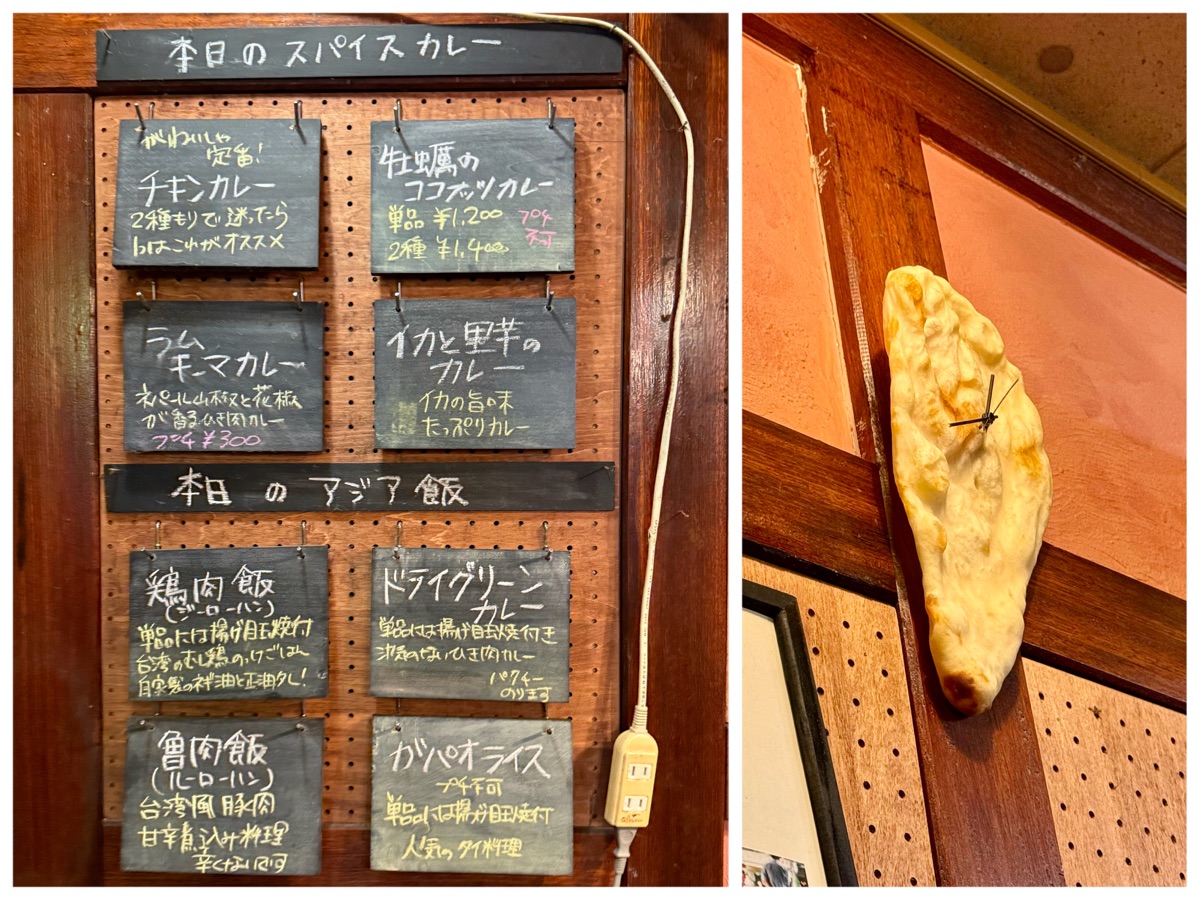 本日のスパイスカレー
がわいしゃ
定番!
チキンカレー
2種もりで迷ったら
1つはこれがオススメ
牡蠣の
ココナッツカレー
単品 ¥1,200
2種 ¥1,400
プチ
不可
ラム
キーマカレー
ネパール山椒と花椒
が香るひき肉カレー
プチ¥300
イカと里芋の
カレー
イカの旨味
たっぷりカレー
本日のアジア飯
鶏肉飯
(ジーローハン)
単品には揚げ目玉焼付
台湾のむし鶏のっけごはん
自家製のネギ油と正油タレ!
ドライグリーン
カレー
単品には揚げ目玉焼付き
汁気のないひき肉カレー
パクチー
のります
魯肉飯
(ルーローハン)
台湾風豚肉
甘辛煮込み料理
辛くないです
ガパオライス
プチ不可
単品には揚げ目玉焼付
人気のタイ料理